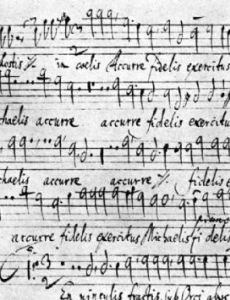 hostis ℅ in coelis Accurre fidelis exercitus
haelis accurre accurre fidelis exercitus
chaelis accurre accurre ℅ fidelis e
accurre fidelis exercitus Michaelis fidelis
En vinculis fractis sub Orci